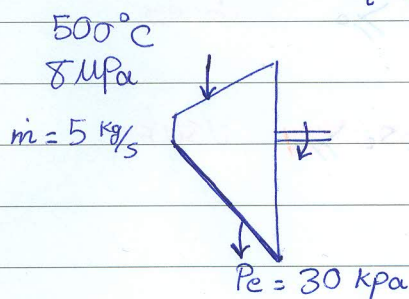 500°C
8 MPa
ṁ = 5 kg/s
Pe = 30 kPa